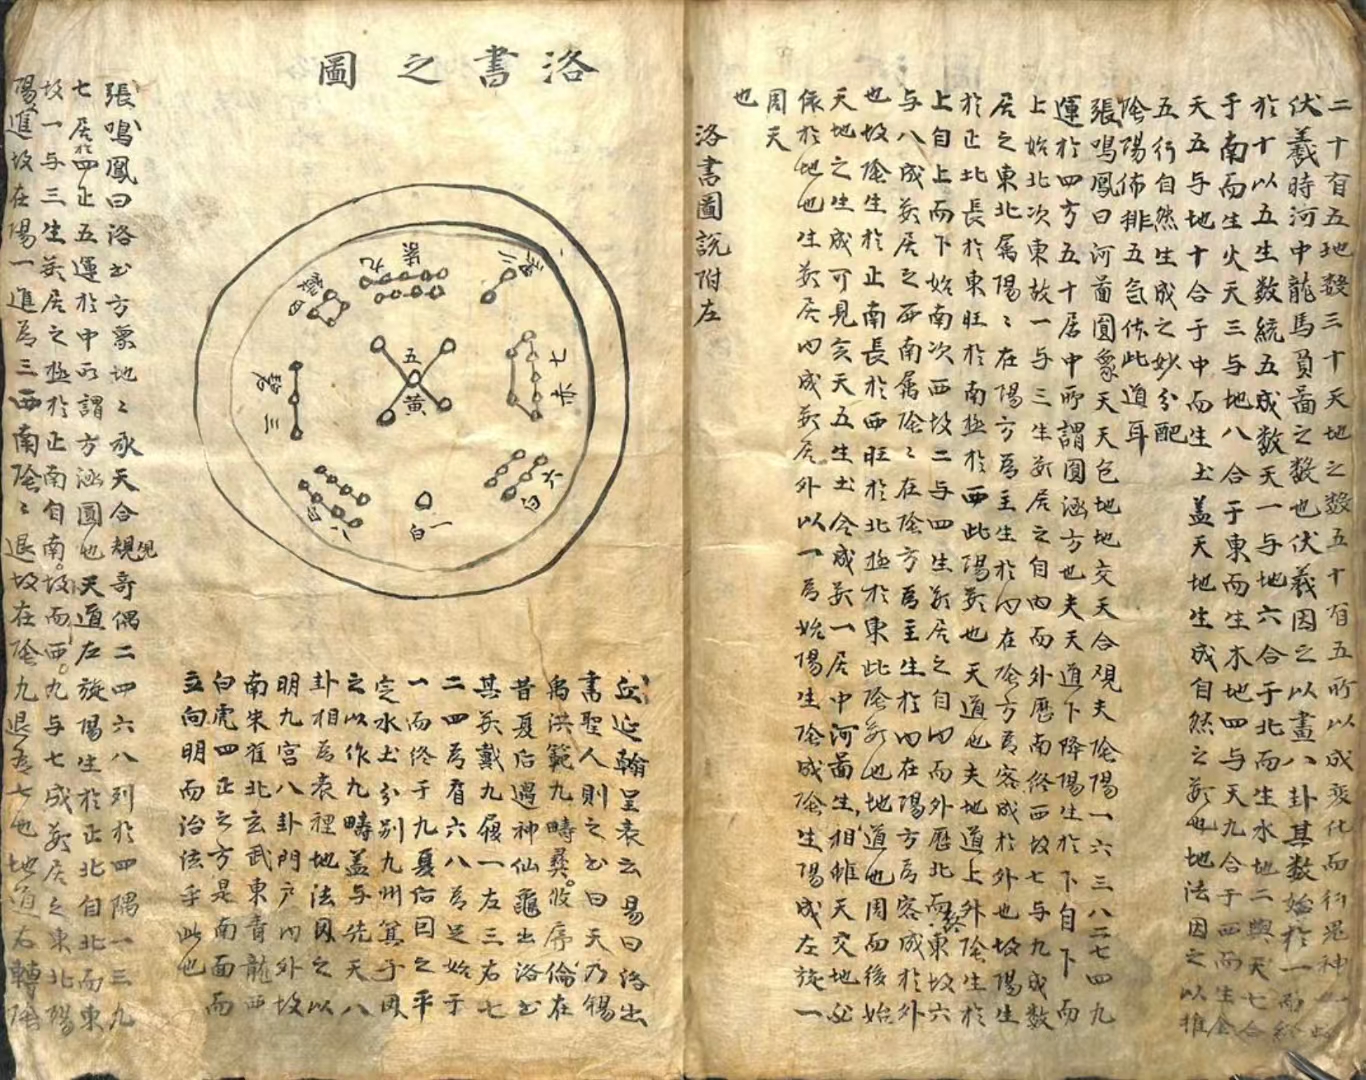 二十有五地数三十天地之数五十有五所以成变化而行鬼神
伏羲時河中龍馬負啚之数也伏羲因之以畫八卦其数始於一而終
於十以五生数統五成数天一与地六合于北而生水地二與天七合
于南而生火天三与地八合于東而生木地四与天九合于西而生金
天五与地十合于中而生土盖天地生成自然之数也地法因之以推
五行自然生成之妙分配
陰陽佈排五氣体此道耳
張鳴鳳曰河啚圓象天天包地地交天合覌夫陰陽一六三八二七四九
運於四方五十居中所謂圓涵方也夫天道下降陽生於下自下而
上始北次東故一与三生数居之自内而外歴南終西故七与九成数
居之東北属陽陽在陽方為主生於内在陰方為客成於外也故陽生
於正北長於東旺於南極於西此陽数也天道也夫地道上升陰生於
上自上而下始南次西故二与四生数居之自内而外歴北而終東故六
与八成数居之西南属陰陰在陰方為主生於内在陽方為客成於外
也故陰生於正南長於西旺於北極於東此陰数也地道也周而後始
天地之生成可見矣天五生土合成数一居中河啚生相維天交地必
依於地也生数居内成数居外以一為始陽生陰成陰生陽成左旋一
周天
也
洛書圖說附左
洛書之圖
二黑
九紫
四綠
七赤
五黃
三碧
六白
一白
八白
丘延翰呈表云易曰洛出
書聖人則之书曰天乃錫
禹洪範九疇彝攸序倫在
昔夏后遇神仙龜出洛书
其数戴九履一左三右七
二四為肩六八為足始于
一而終于九夏后因之平
定水土分别九州箕子因
之以作九疇盖与先天八
卦相為表裡地法因之以
明九宮八卦門户内外故
南朱雀北玄武東青龍西
白虎四正之方是南面而
立向明而治法乎此也
張鳴鳳曰洛书方象地地承天合規覌奇偶二四六八列於四隅一三九
七居於四正五運於中所謂方涵圓也天道左旋陽生於正北自北而東
故一与三生数居之極於正南自南故而西九与七成数居之東北陽
陽進故在陽一進為三西南陰陰退故在陰九退為七也地道右轉陰